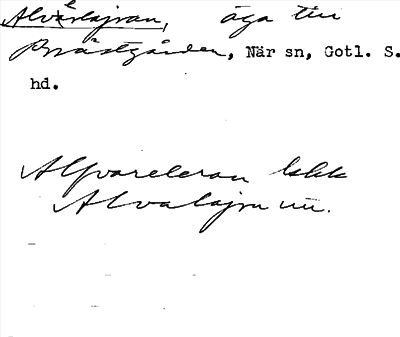 Alvarlajran, äga till
Prästgården, När sn, Gotl. S.
hd.
Alfvareleran
Alvalajru nu.